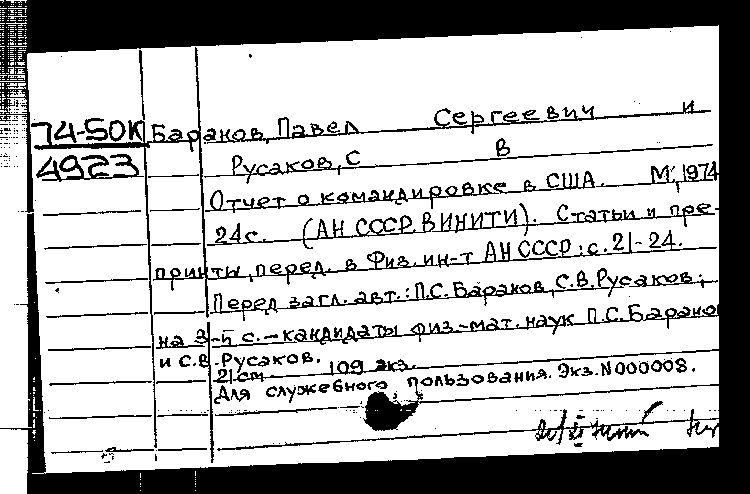 74-50К Баранов, Павел Сергеевич и
4923 Русаков, С В
Отчет о командировке в США. М., 1974
24с. (АН СССР. ВИНИТИ). Статьи и пре-
принты, перед. в Физ. ин-т АН СССР: с. 21-24.
Перед загл. авт.: П.С. Баранов, С.В. Русаков;
на 3-й с. - кандидаты физ-мат. наук П.С. Барано
и С.В. Русаков.
21 см 109 экз.
Для служебного пользования. Экз. N000008.